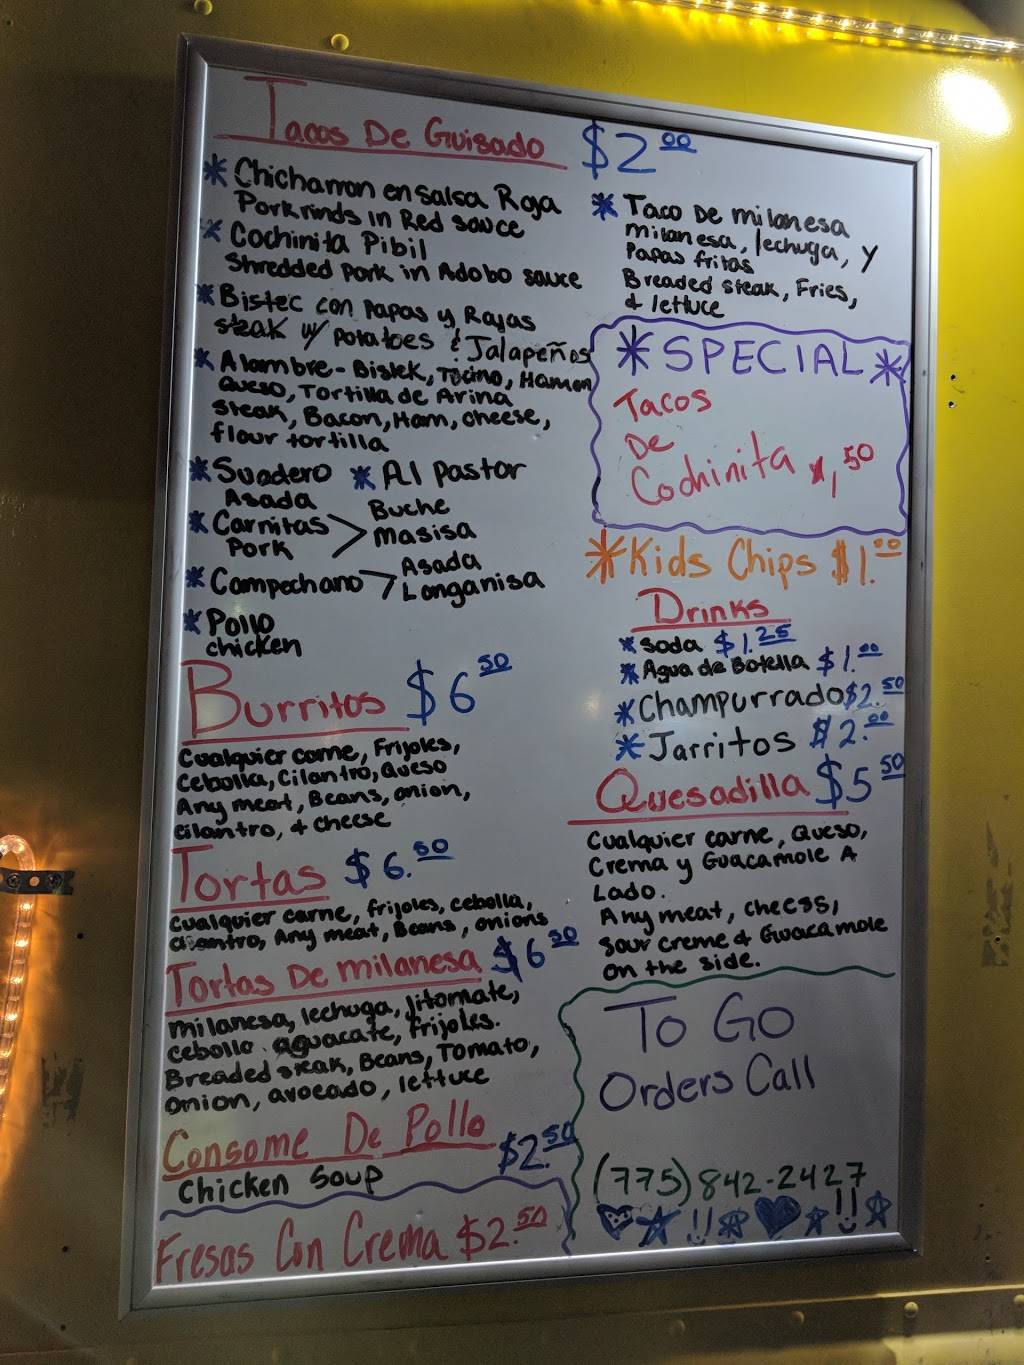 Tacos De Guisado $2.00
* Chicharron en Salsa Roja
Pork rinds in Red sauce
* Cochinita Pibil
Shredded pork in Adobo sauce
* Bistec con Papas y Rajas
steak w/ potatoes & Jalapeños
* Alambre - Bistek, Tocino, Hamon
Queso, Tortilla de Arina
Steak, Bacon, Ham, cheese,
flour tortilla
* Suadero * Al pastor
Asada
* Carnitas > Buche
Pork Masisa
* Campechano > Asada
Longanisa
* Pollo
chicken
Burritos $6.50
Cualquier carne, Frijoles,
Cebolla, Cilantro, Queso
Any meat, Beans, onion,
cilantro, & cheese
Tortas $6.50
Cualquier carne, frijoles, cebolla,
cilantro, Any meat, Beans, onions
Tortas De milanesa $6.50
milanesa, lechuga, Jitomate,
cebolla, aguacate, frijoles.
Breaded steak, Beans, Tomato,
onion, avocado, lettuce
Consome De Pollo $2.50
Chicken Soup
Fresas Con Crema $2.50
* Taco De milanesa
milanesa, lechuga, y
Papas fritas
Breaded steak, Fries,
& lettuce
* SPECIAL *
Tacos
De
Cochinita 1.50
* Kids Chips $1.00
Drinks
* Soda $1.25
* Agua de Botella $1.00
* Champurrado $2.50
* Jarritos $2.00
Quesadilla $5.50
Cualquier carne, Queso,
Crema y Guacamole A
Lado.
Any meat, cheess,
Sour creme & Guacamole
on the side.
To Go
Orders Call
(775) 842-2427